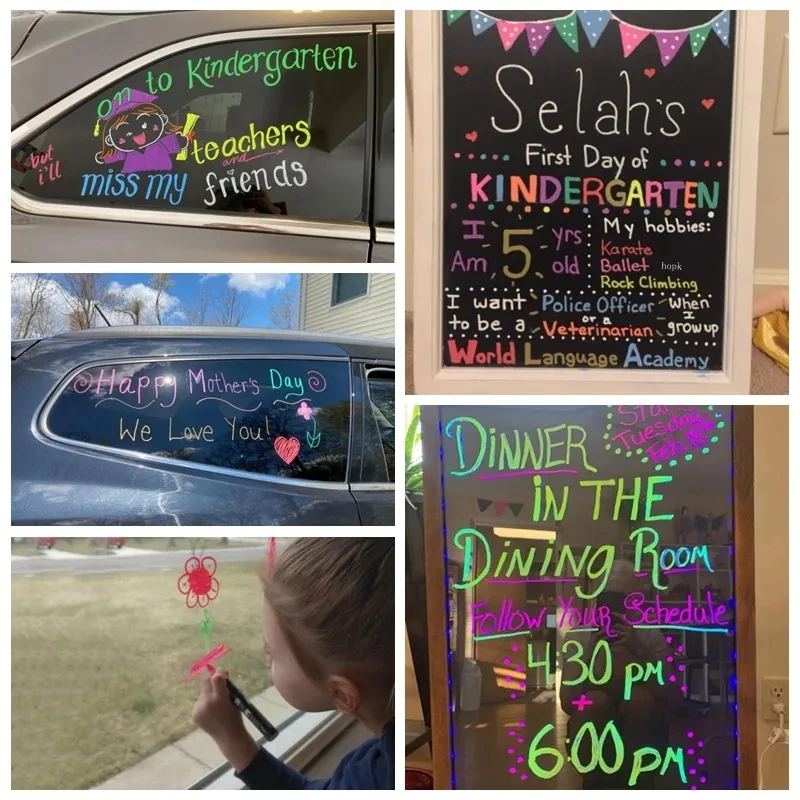 on to Kindergarten
but i'll
teachers
and
miss my friends
Happy Mother's Day
We Love You!
Selah's
First Day of
KINDERGARTEN
I Am 5 yrs old
My hobbies:
Karate
Ballet
hopk
Rock Climbing
I want to be a
Police Officer
or a
Veterinarian
when I grow up
World Language Academy
Tuesday
DINNER
IN THE
DINING ROOM
Follow Your Schedule
4:30 pm
+
6:00 pm